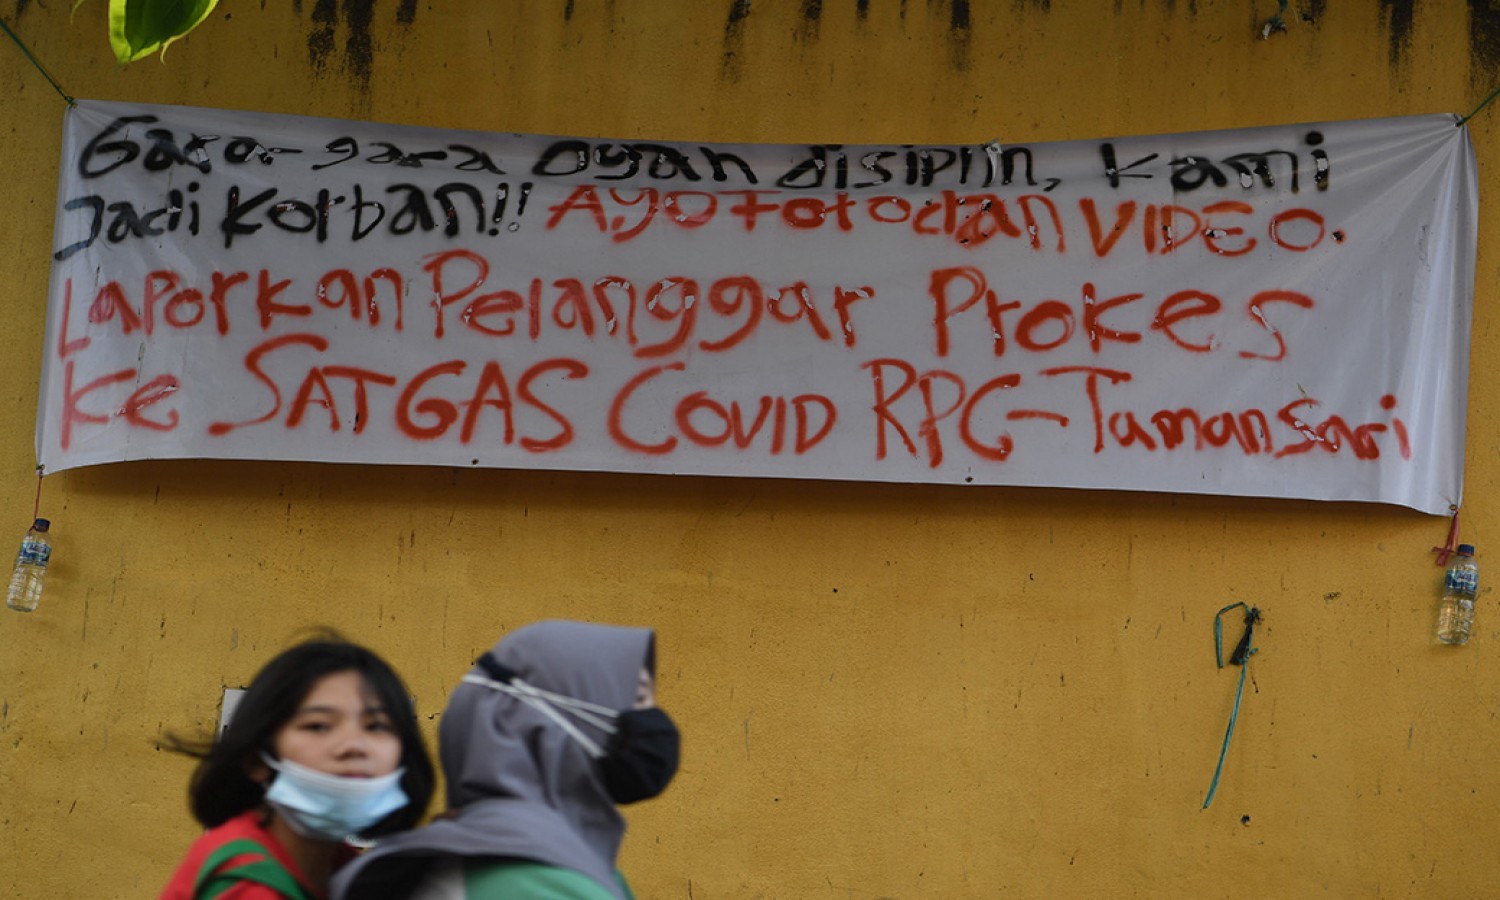 Gara-gara ogah disiplin, kami
Jadi korban!! AYO Foto dan VIDEO.
Laporkan Pelanggar Prokes
ke SATGAS COVID RPC-Tamansari